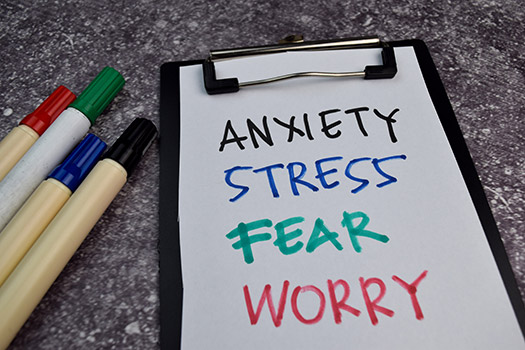 ANXIETY
STRESS
FEAR
WORRY